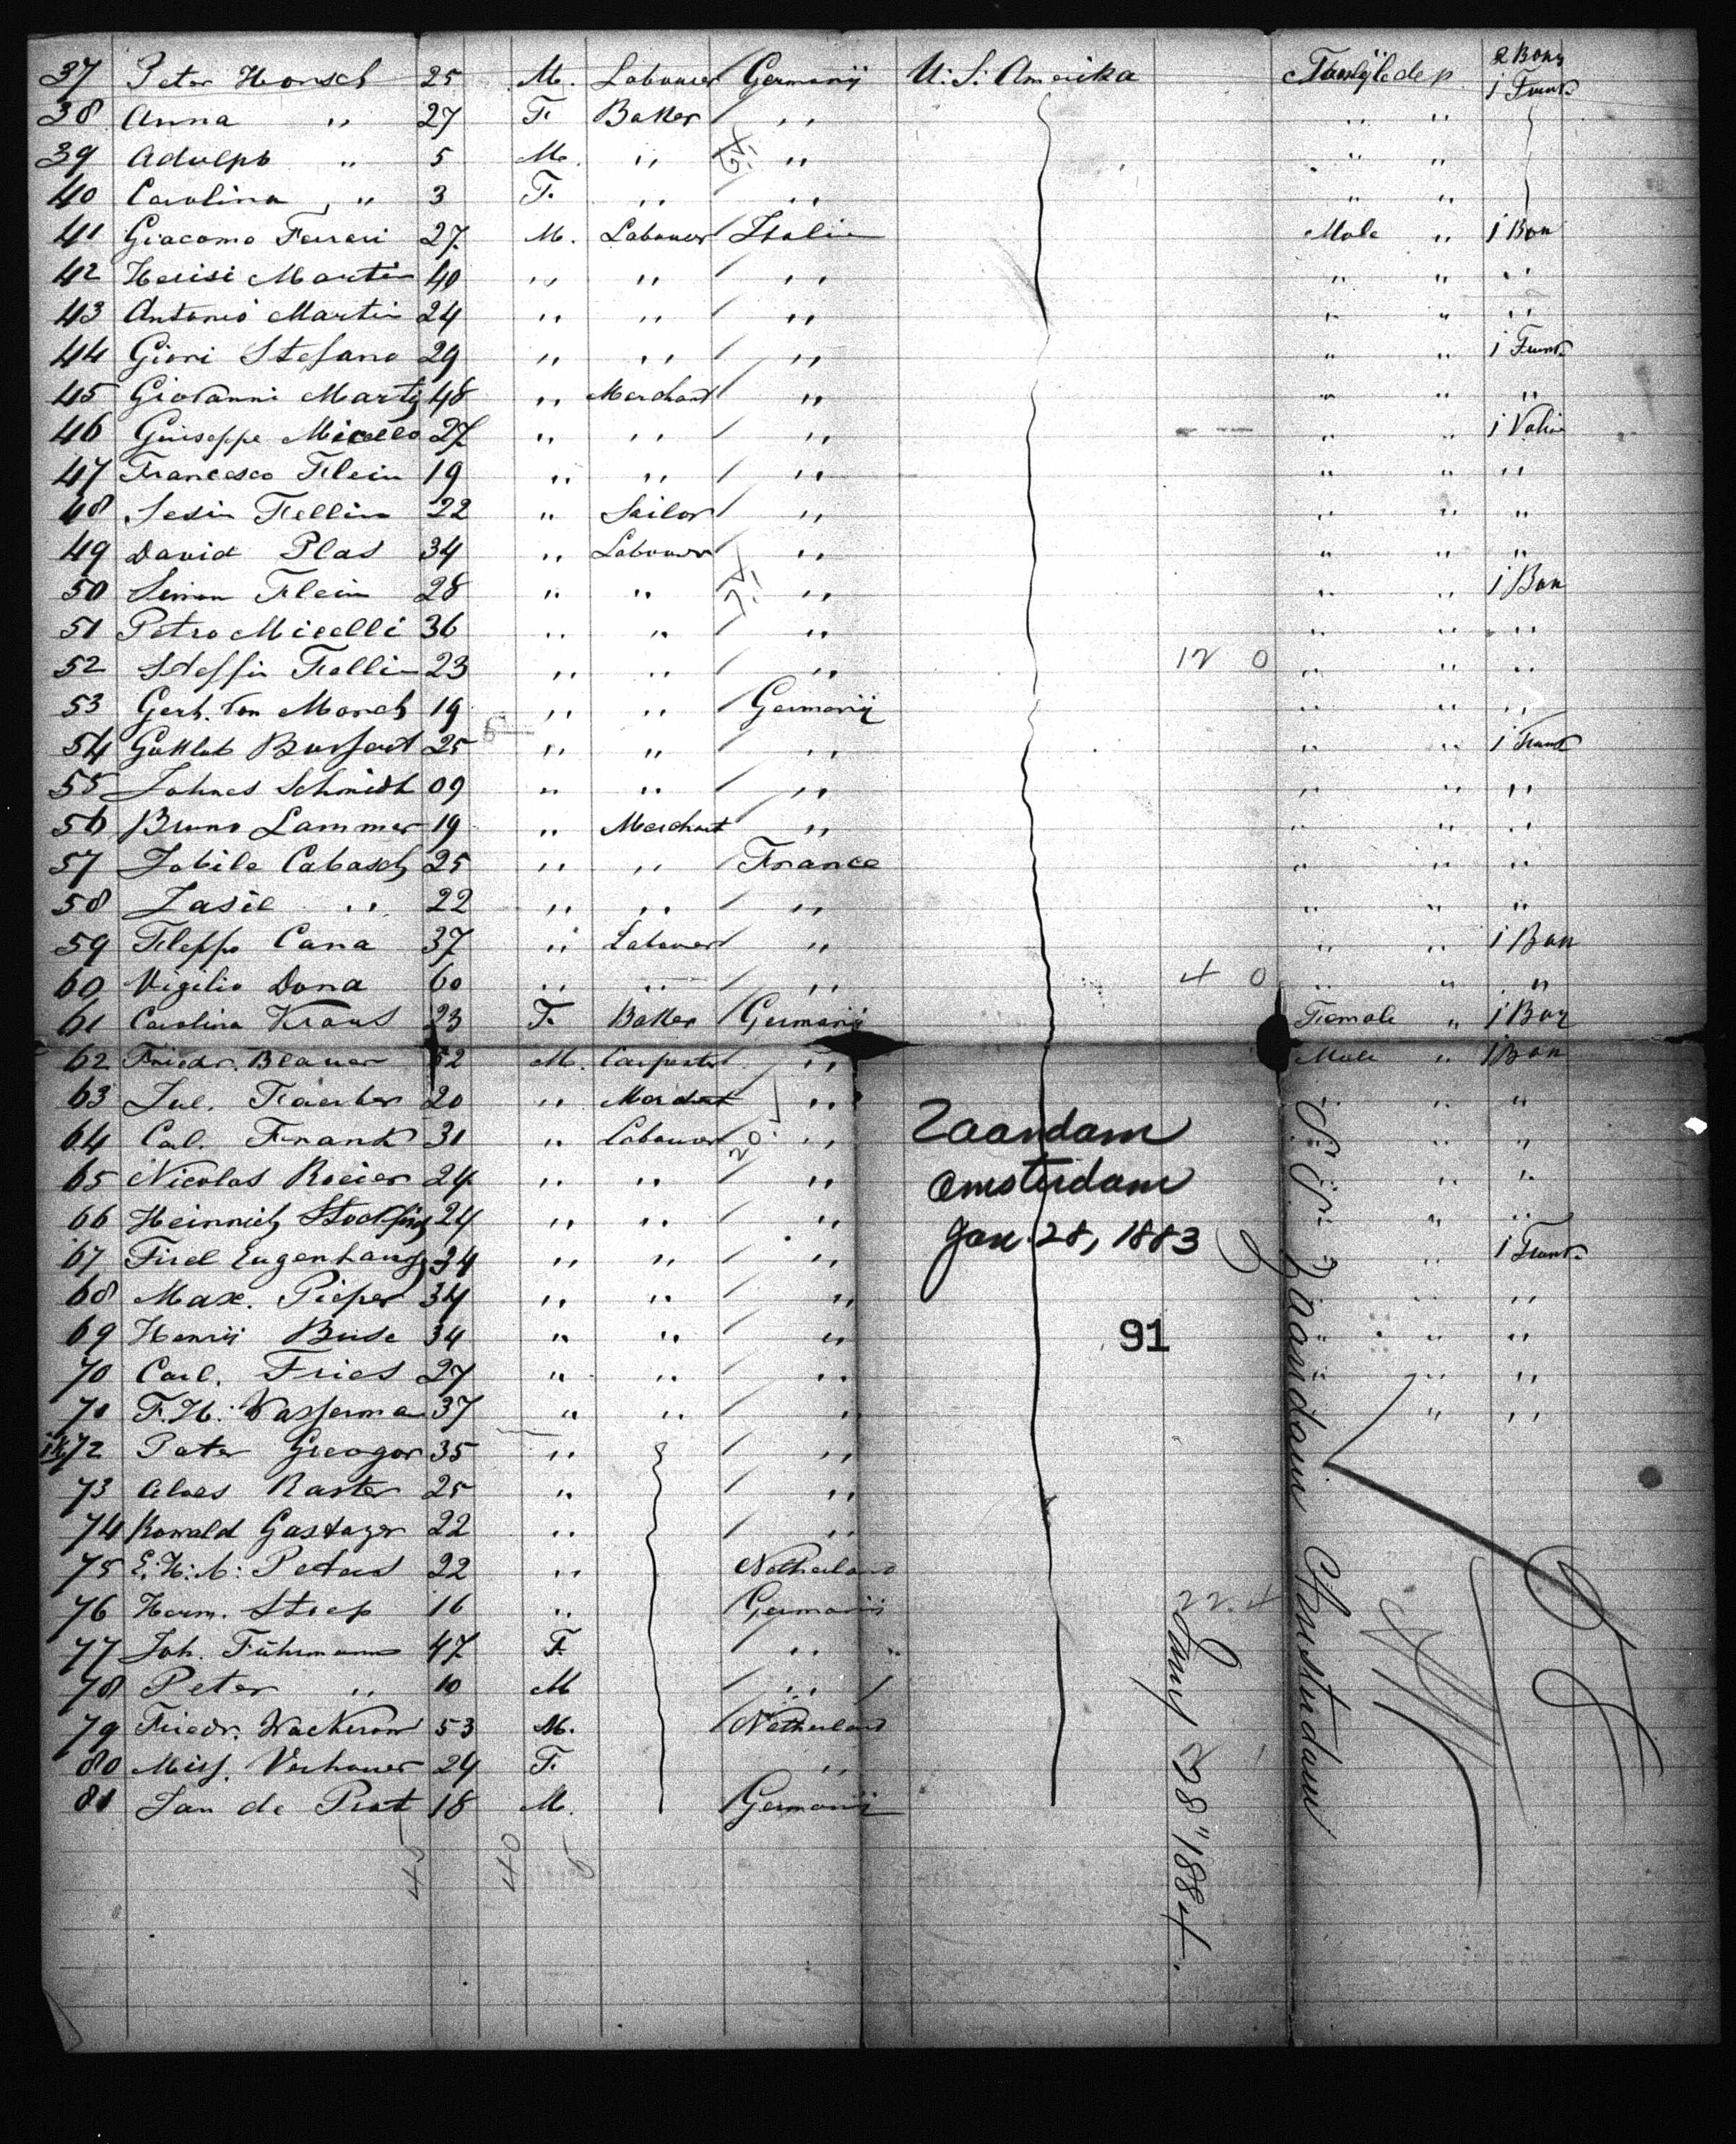 37 Peter Horsch 25 M. Labouer Germanÿ U. S. Amerika Famÿle dep 2 Boxes 1 Trunk
38 Anna " 27 F. Baker " " "
39 Adolph " 5 M. " " " "
40 Carolina " 3 F. " " " "
41 Giacomo Ferrari 27 M. Labouer Italie Male " 1 Box
42 Martin 40 " " " " " "
43 Antonio Martin 24 " " " " " "
44 Giori Stefano 29 " " " " " 1 Trunk
45 Giovanni 48 " Merchant " " " "
46 Guiseppe 27 " " " " " 1 Valise
47 Francesco Flein 19 " " " " " "
48 Fellin 22 " Sailor " " " "
49 David Plas 34 " Labouer " " " "
50 Simon Flein 28 " " " " " 1 Box
51 Petro Micelli 36 " " " " " "
52 Steffin 23 " " " 12 0 " " "
53 Gerh. von 19 " " Germanÿ " " "
54 25 " " " " " 1 Trunk
55 Johnes Schmidt 09 " " " " " "
56 Bruno Lammer 19 " Merchant " " " "
57 Cabasch 25 " " France " " "
58 " 22 " " " " " "
59 Cana 37 " Labouer " " " 1 Box
60 Vigilio Dona 60 " " " 4 0 " " "
61 Carolina Kraus 23 F. Baker Germanÿ Female " 1 Box
62 Friedr. Blauer 52 M. Carpenter " Male " 1 Box
63 Jul. 20 " Merchant " " " "
64 Cal. Frank 31 " Labouer " " "
65 Nicolas 24 " " " " "
66 Heinrich 24 " " " " "
67 34 " " " " 1 Trunk
68 Max. Pieper 34 " " " " " "
69 Henrÿ Buse 34 " " " " " "
70 Carl. Fries 27 " " " " " "
71 F. H. Wasserman 37 " " " " " "
72 Peter Greogor 35 " "
73 Aloes Raster 25 " "
74 Gastager 22 " "
75 Peters 22 " Netherland
76 Herm. Stoep 16 " Germanÿ
77 Joh. Führmann 47 F. "
78 Peter " 10 M "
79 Friedr. 53 M. Netherland
80 Miss. 24 F. "
81 Jan de Prat 18 M. Germanÿ
Zaandam
Amsterdam
Jan. 28, 1883
91
S. S. Zaandam Amsterdam
22 4
2 1
Jany 28" 1884.
45 40 5